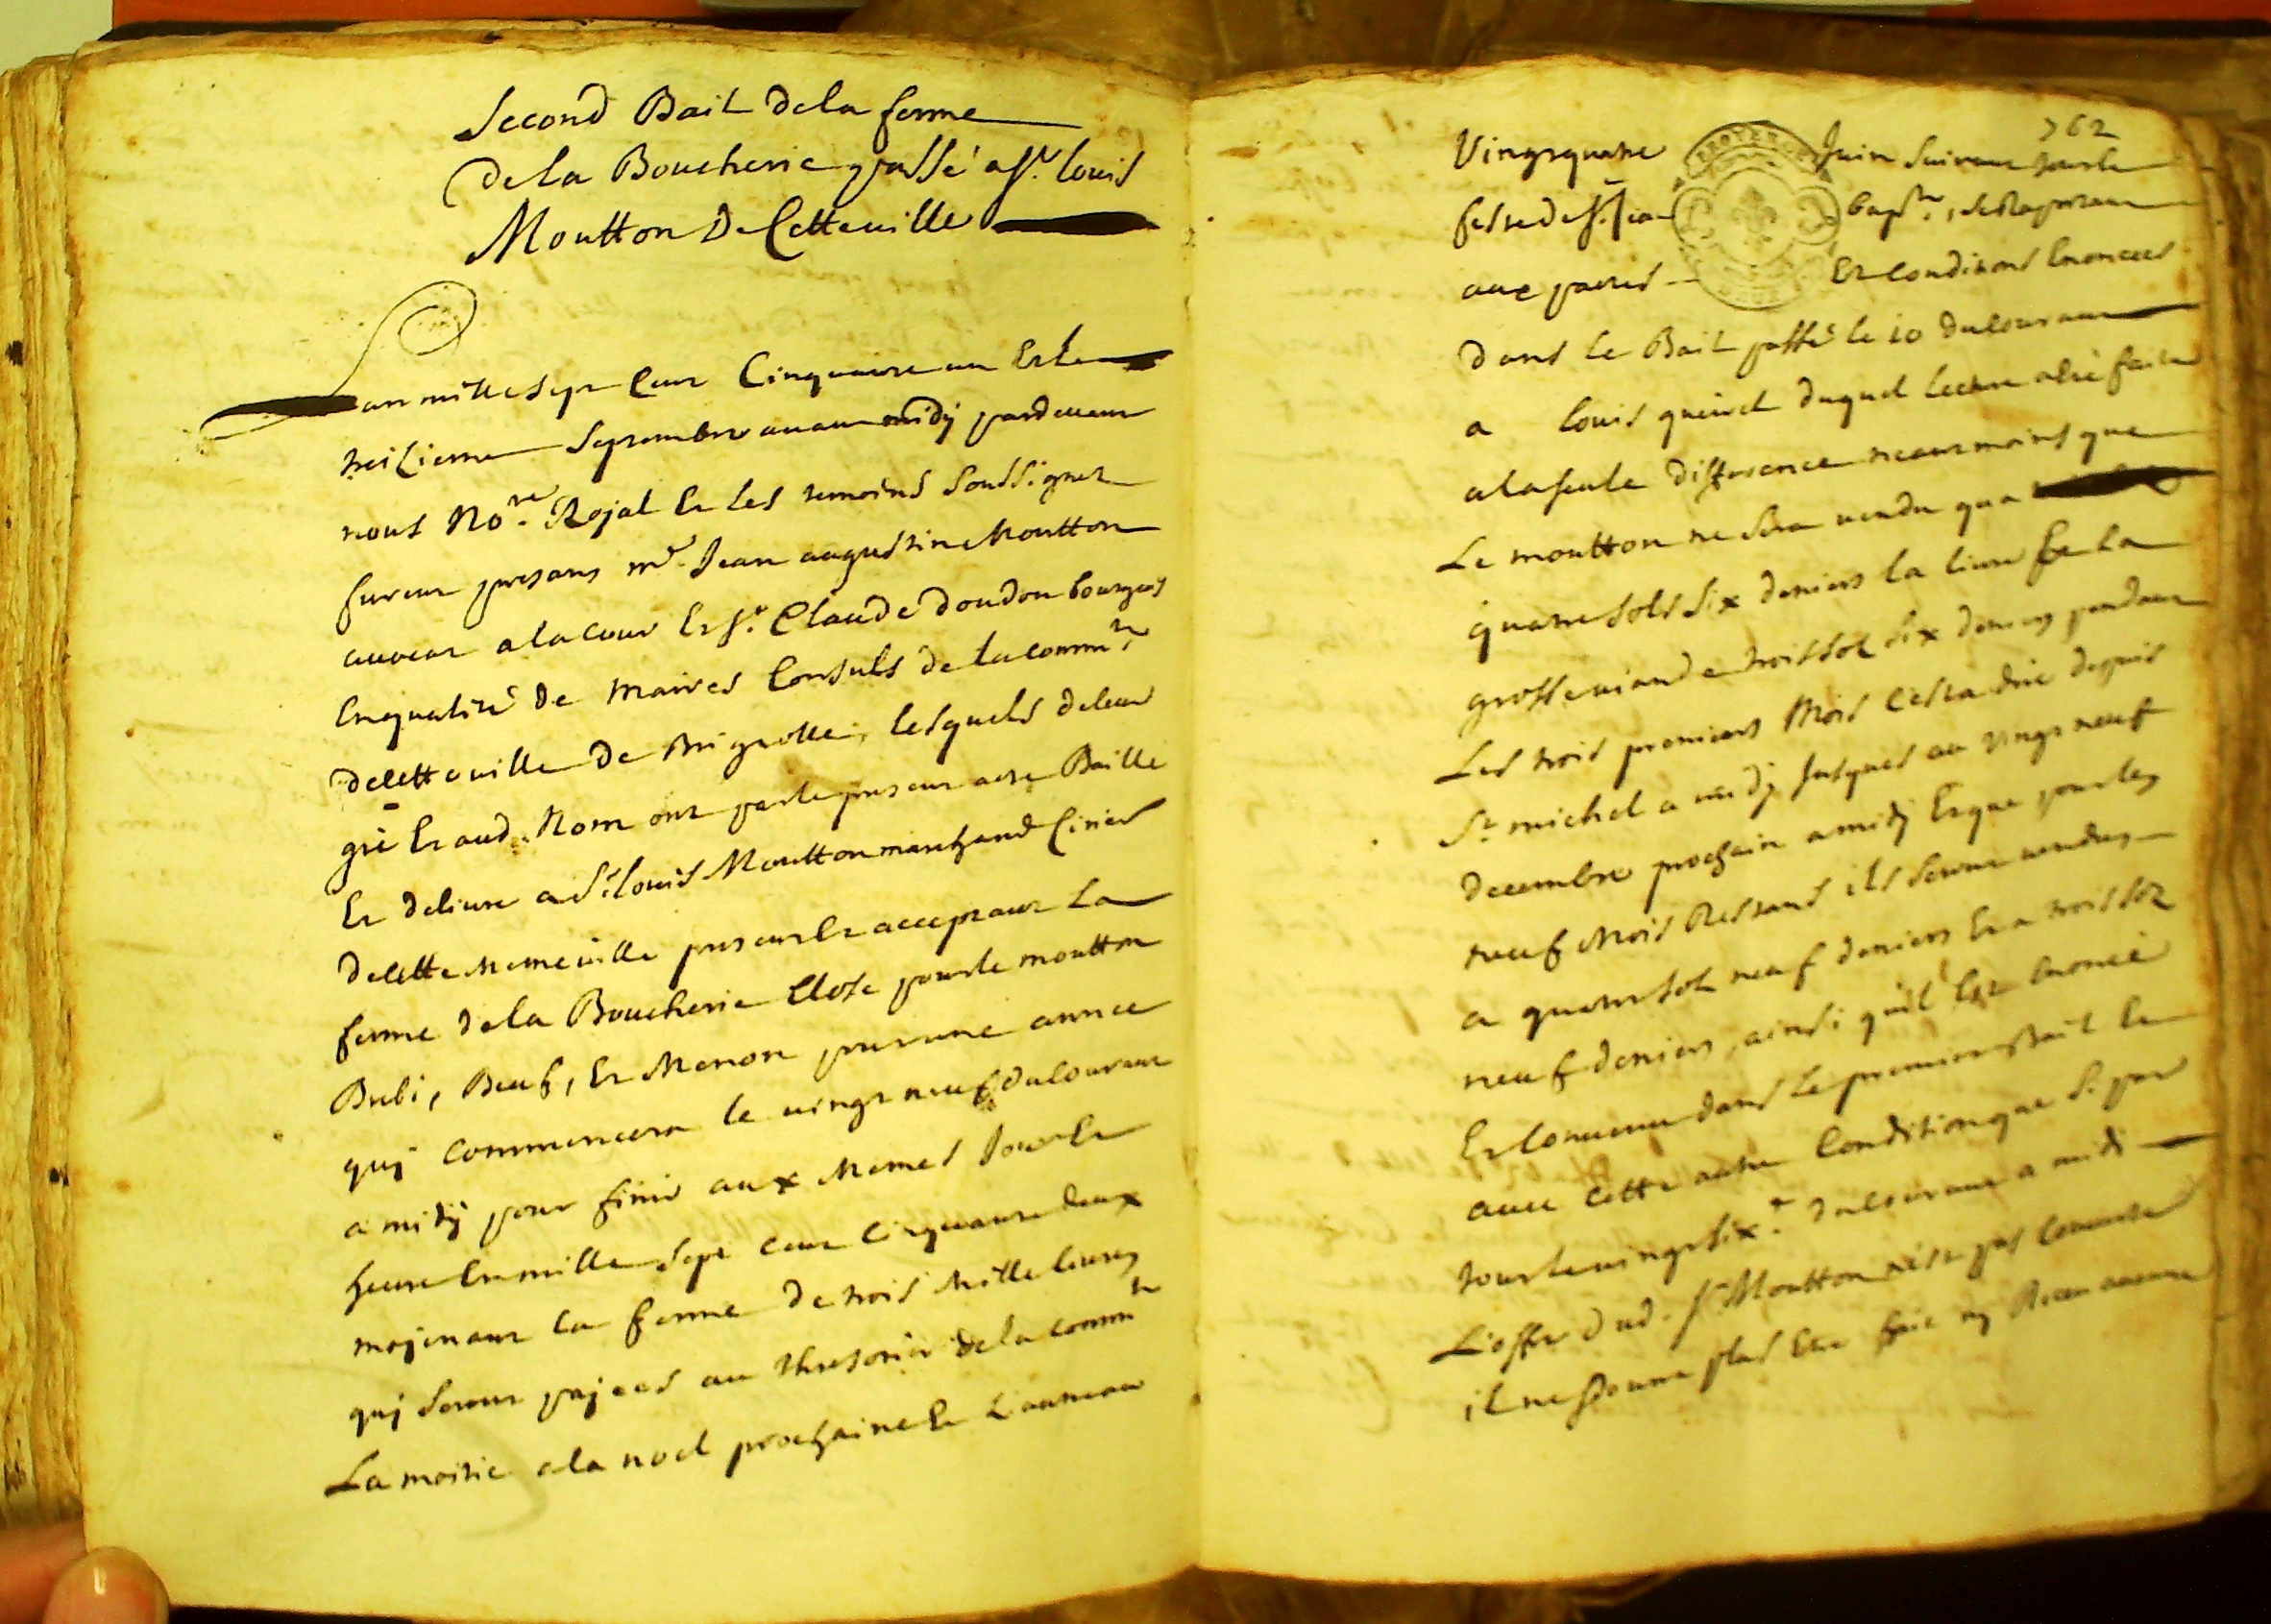 Second Bail de la ferme
de la Boucherie passé a sr. louis
Moutton de Cette ville
L'an mille sept cent Cinquante un Et le
treizieme Septembre avant midy pardevant
nous No.re Rojal Et les temoins soussignes
furent presans me. Jean augustin Moutton
avocat a la cour Et sr. Claude doudon bourgeois
En qualité de maires Consuls de la comm.té
de cette ville de Brignolle, lesquels de leur
gré Et aud. Nom ont par le present acte Baillé
Et delivré a Sr. louis Moutton marchand Cirier
de cette meme ville present Et acceptant La
ferme de la Boucherie Close pour le moutton
Brebi, Beuf, Et Menon pour une annee
quj commencera le vingt neuf du Courant
a midy pour finir aux Memes Jour Et
heure En mille sept cent Cinquante deux
mojenant la ferme de trois mille livres
quj seront pajees au thresorier de la comm.té
La moitie a la noel prochaine Et L'autre au
762
Vingt quatre Juin suivant jour la
feste de st. Jean bapte.,
aux pactes Et conditions Enoncees
dans Le Bail passé le 10 du Courant
a Louis queirel duquel lecture a été faite
a la seule difference neantmoins que
Le moutton ne sera vendu qu'a
quatre sols six deniers la livre Et la
grosse viande trois sols six deniers pendant
Les trois premiers Mois C'est a dire depuis
St. michel a midy Jusques au vingt neuf
decembre prochain a midy Et que pour les
neuf Mois Restans ils seront vendus
a quatre sols neuf deniers Et a trois sols
neuf deniers, ainsi qu'il Est Enoncé
Et Contenu dans Le premier Bail Et
avec cette autre Condition que si par
tout le vingt sixe. du Courant a midi
L'offre dud. sr Moutton n'est pas Couverte
il ne pourra plus Etre fait nj Receu aucune